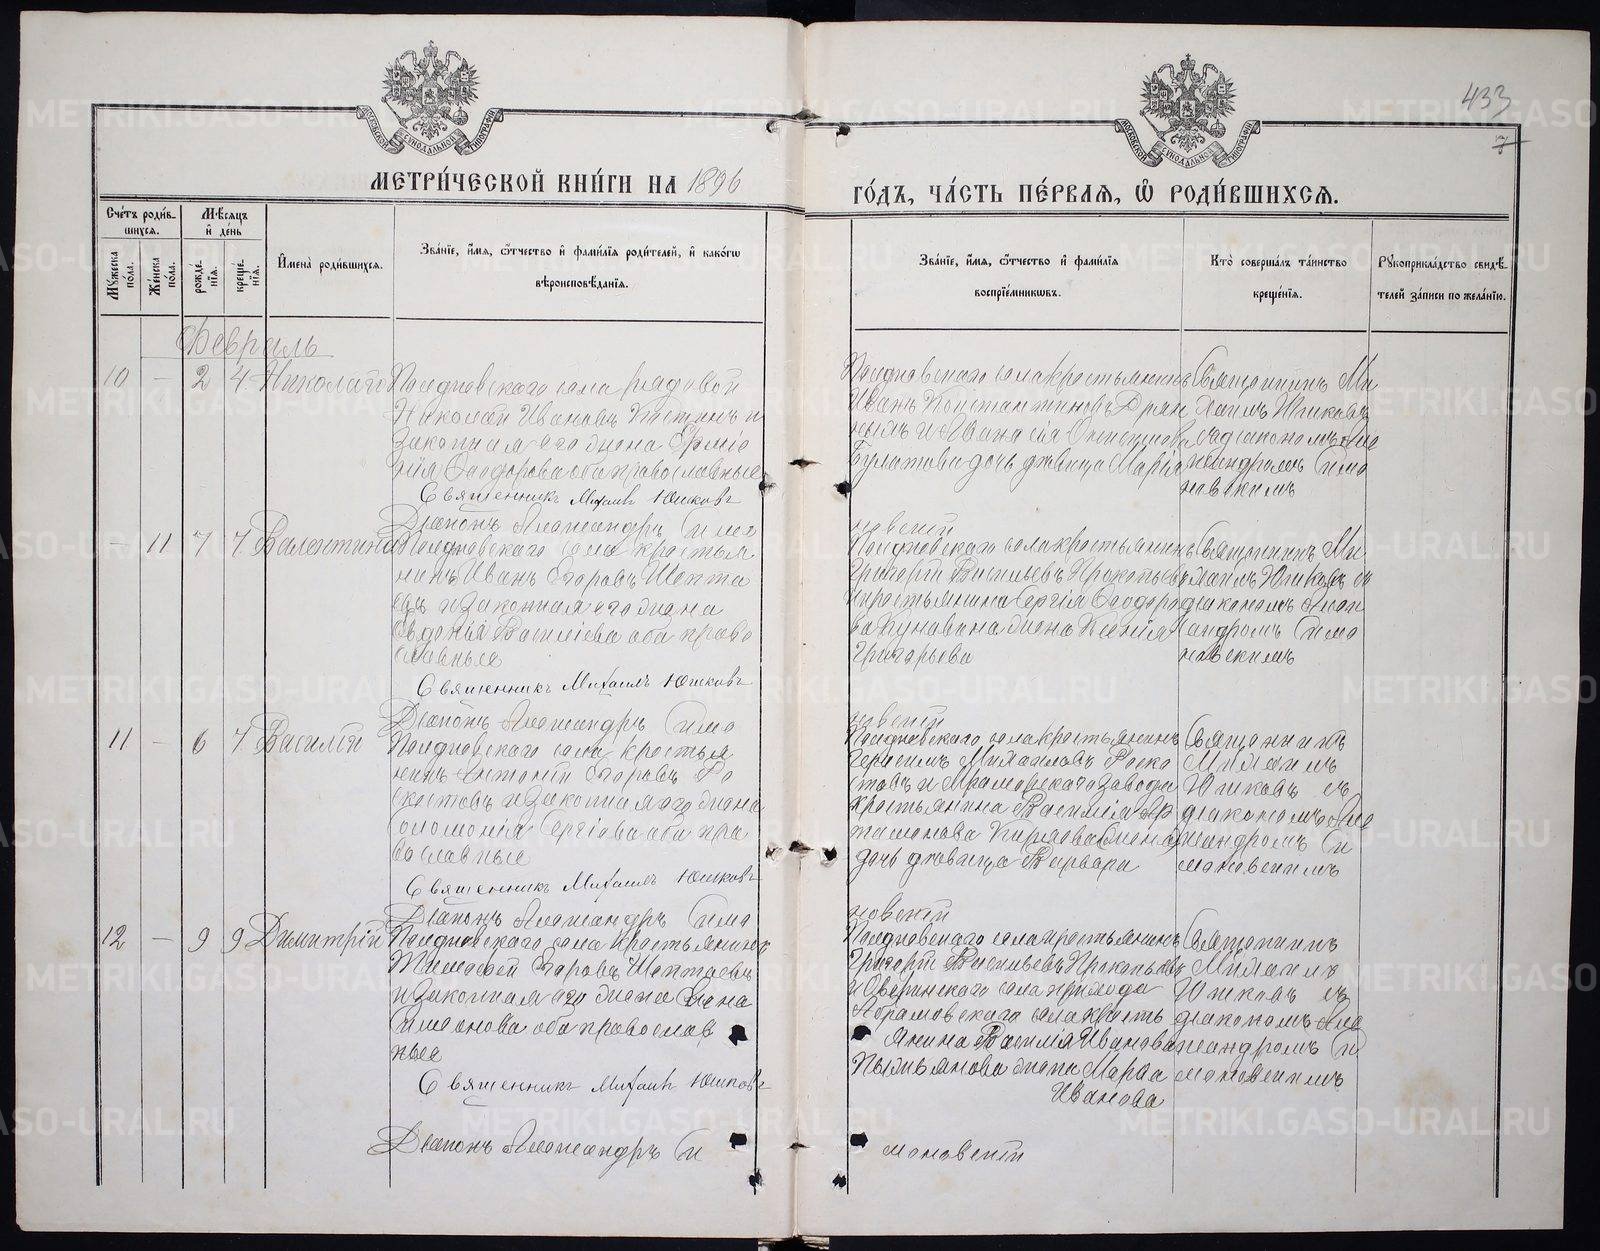 433
7
МЕТРИ́ЧЕСКОЙ КНИ́ГИ НА 1896
ГО́ДЪ, ЧА́СТЬ ПЕ́РВАѦ, Ѡ҆ РОДИ́ВШИХСѦ.
Сче́тъ роди́в-
шихсѧ.
Мѣ́сѧцъ
и҆ де́нь
Мꙋ́жеска
пола.
Же́нска
по́ла.
рожде́-
нїѧ.
креще́-
нїѧ.
И҆мена̀ роди́вшихсѧ.
Зва́нїе, и҆́мѧ, ѻ҆́тчество и҆ фами́лїѧ роди́телей, и҆ како́гѡ
вѣроисповѣ́данїѧ.
Зва́нїе, и҆́мѧ, ѻ҆́тчество и҆ фами́лїѧ
воспрїе́мникѡвъ.
Кто̀ соверша́лъ та́инство
креще́нїѧ.
Рꙋкоприкла́дство свидѣ́-
телей за́писи по жела́нїю.
Февраль
10 — 2 4 Николай
Полдневскаго села рядовой
Николай Ивановъ и
законная его жена Ермiо
нiя Ѳеодорова оба православные
Священникъ Михаилъ Юшковъ
Дiаконъ Александръ Симо
новскiй
Полдневскаго села крестьянинъ
Иванъ Константиновъ
дочь дѣвица Марiя
Священникъ Ми
хаилъ Юшковъ
съ дiакономъ Але
ксандромъ Симо
новскимъ
— 11 7 7 Валентина
Полдневскаго села крестья
нинъ Иванъ Егоровъ Шепта
евъ и законная его жена
Евдокiя Василiева оба право
славные
Священникъ Михаилъ Юшковъ
Дiаконъ Александръ Симо
новскiй
Полдневскаго села крестьянинъ
Григорiй Васильевъ Прокопьевъ
и крестьянина Сергiя Ѳеодоро
ва жена Ксенiя
Григорьева
Священникъ Ми
хаилъ Юшковъ съ
дiакономъ Алек
сандромъ Симо
новскимъ
11 — 6 7 Василiй
Полдневскаго села крестья
нинъ Антонiй Егоровъ Ро
скостовъ и законная его жена
Соломонiя Сергiева оба пра
вославные
Священникъ Михаилъ Юшковъ
Дiаконъ Александръ Симо
новскiй
Полдневскаго села крестьянинъ
Герасимъ Михаиловъ Роско
стовъ и Мраморскаго завода
крестьянина Василiя Ар
тамонова
дочь дѣвица Варвара
Священникъ
Михаилъ
Юшковъ съ
дiакономъ Але
ксандромъ Си
моновскимъ
12 — 9 9 Димитрiй
Полдневскаго села крестьянинъ
Тимофей Егоровъ Шептаевъ
и законная его жена Елена
Симеонова оба православ
ные
Священникъ Михаилъ Юшковъ
Дiаконъ Александръ Си
моновскiй
Полдневскаго села крестьянинъ
Григорiй Васильевъ Прокопьевъ
и села прихода
Абрамовскаго села кресть
янина Василiя Иванова
жена Марѳа
Иванова
Священникъ
Михаилъ
Юшковъ съ
дiакономъ Але
ксандромъ Си
моновскимъ
METRIKI.GASO-URAL.RU